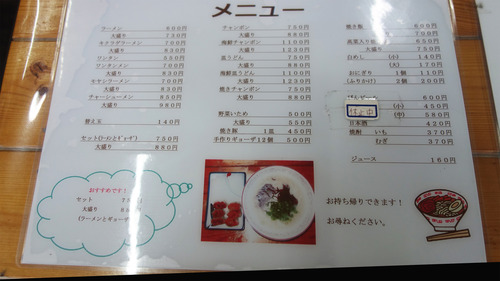 メニュー
ラーメン 600円
大盛り 730円
キクラゲラーメン 700円
大盛り 830円
ワンタン 550円
ワンタンメン 700円
大盛り 830円
モヤシラーメン 700円
大盛り 830円
チャーシューメン 850円
大盛り 980円
替え玉 140円
セット(ラーメンとギョーザ) 750円
大盛り 880円
チャンポン 750円
大盛り 880円
海鮮チャンポン 1100円
大盛り 1230円
皿うどん 750円
大盛り 880円
海鮮皿うどん 1100円
大盛り 1230円
焼きチャンポン 750円
大盛り 880円
野菜いため 500円
大盛り 550円
焼き豚 1皿 450円
手作りギョーザ12個 500円
焼き飯 600円
大盛り 700円
大盛り 750円
白めし (小) 140円
(大) 170円
おにぎり 1個 110円
(ふりかけ) 2個 200円
600円
(小) 450円
(中) 580円
日本酒 420円
焼酎 いも 370円
むぎ 370円
ジュース 160円
おすすめです!
セット
大盛り
(ラーメンとギョーザ
お持ち帰りできます!
お尋ねください。